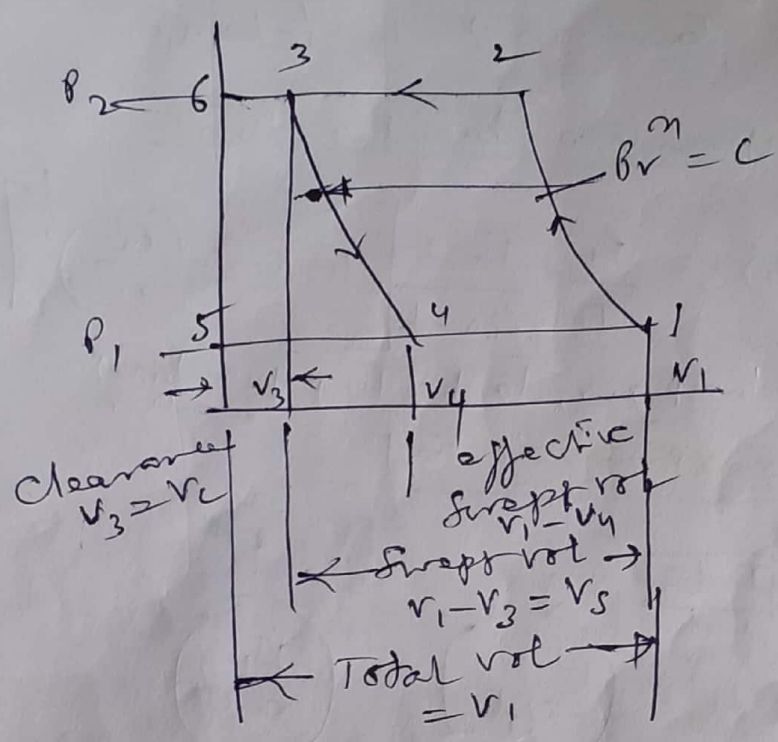 3 2
P2 6
Pvⁿ = C
P1 5 4 1
V3 V4 V1
Clearance
V3 = Vc
effective
Swept vol
V1 - V4
Swept vol
V1 - V3 = Vs
Total vol
= V1